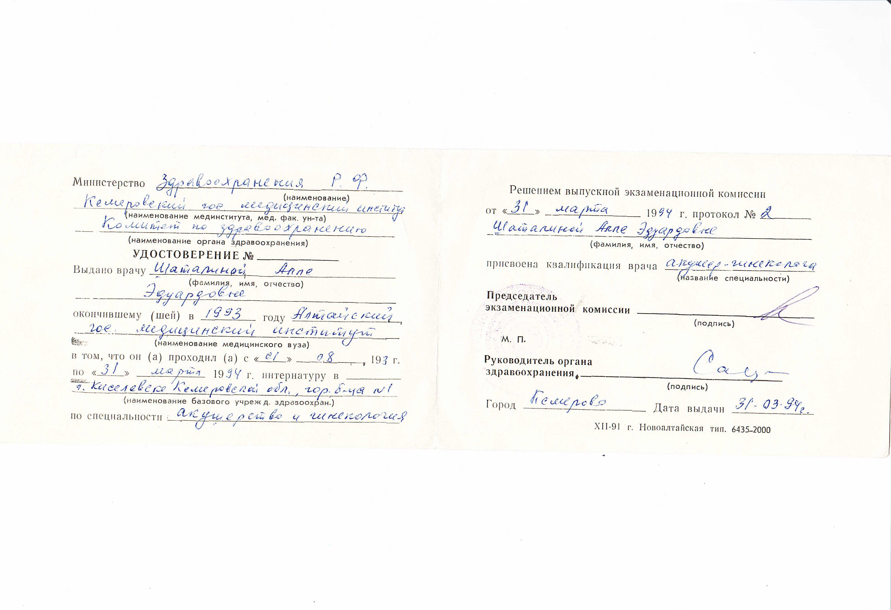 Министерство Здравоохранения Р. Ф.
(наименование)
Кемеровский гос медицинский институт
(наименование мединститута, мед. фак. ун-та)
Комитет по здравоохранению
(наименование органа здравоохранения)
УДОСТОВЕРЕНИЕ №
Выдано врачу Шаталиной Алле
(фамилия, имя, отчество)
Эдуардовне
окончившему (шей) в 1993 году Алтайский
гос. медицинский институт
(наименование медицинского вуза)
в том, что он (а) проходил (а) с «01» 08, 193 г.
по «31» марта 1994 г. интернатуру в
г. Киселевске Кемеровской обл., гор. б-ца №1
(наименование базового учрежд. здравоохран.)
по специальности акушерство и гинекология
Решением выпускной экзаменационной комиссии
от «31» марта 1994 г. протокол № 2
Шаталиной Алле Эдуардовне
(фамилия, имя, отчество)
присвоена квалификация врача акушер-гинеколога
(название специальности)
Председатель
экзаменационной комиссии
(подпись)
М. П.
Руководитель органа
здравоохранения,
(подпись)
Город Кемерово Дата выдачи 31.03.94г.
XII-91 г. Новоалтайская тип. 6435-2000